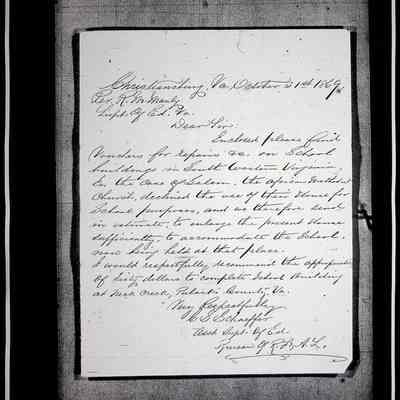 Christiansburg, Va. October 21st 1869
Rev. R. M. Manly
Supt. Of Ed. Va.
Dear Sir
Enclosed please find
Vouchers for repairs &c. on School
buildings in South Western Virginia
In the Case of Salem, the African Methodist
Church, declined the use of their House for
School purposes, and we therefore send
an estimate, to enlarge the present House
sufficiently, to accommodate the School,
now being held at that place.
I would respectfully recommend the appropriation
Of Sixty dollars to complete School Building
at Neck Creek, Pulaski County, Va.
Very Respectfully
C. S. Schaeffer
Asst Supt. Of Ed.
Bureau Of R. F. & A. L.